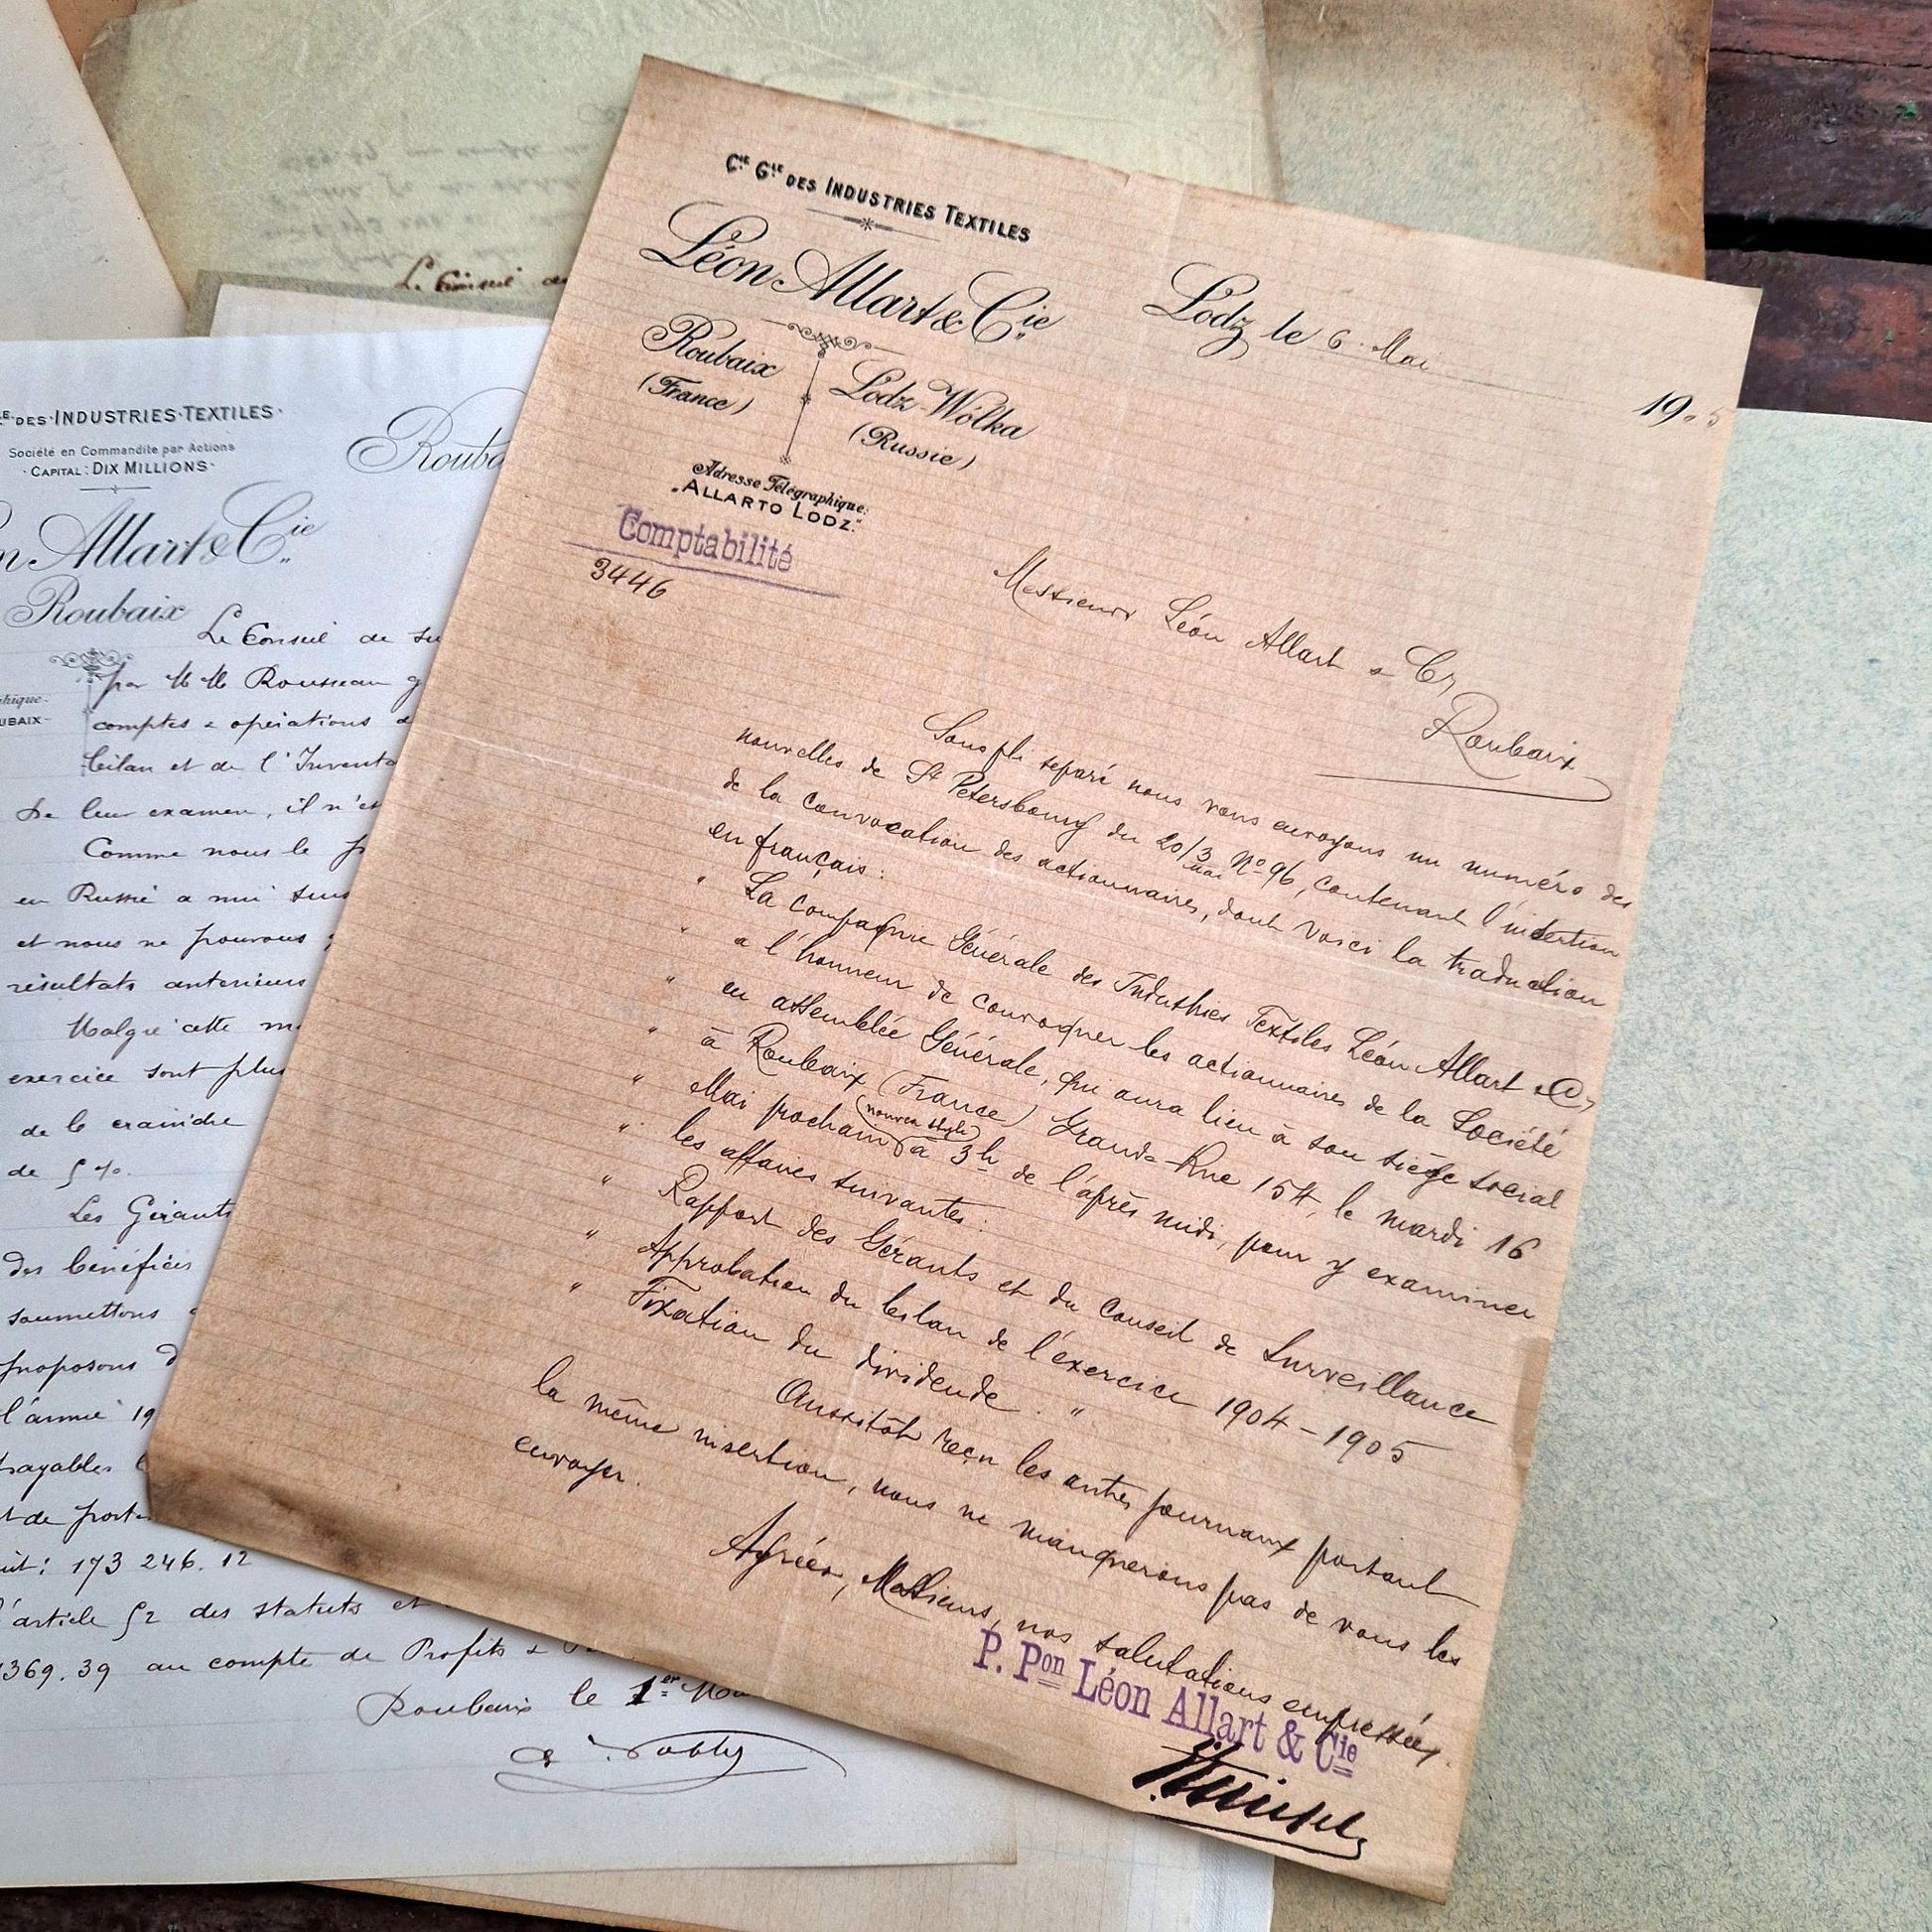 Cie Gle DES INDUSTRIES TEXTILES
Léon Allart & Cie
Roubaix
(France)
Lodz-Wólka
(Russie)
Adresse Télégraphique:
„ALLARTO LODZ."
Comptabilité
3446
Lodz le 6 Mai 1905
Messieurs Léon Allart & Cy
Roubaix
Sous pli separé nous vous envoyons un numéro des
nouvelles de St Petersbourg du 20/3 mai No 96, contenant l'insertion
de la convocation des actionnaires, dont voici la traduction
en français:
" La compagnie Générale des Industries Textiles Léon Allart & Cy
" a l'honneur de convoquer les actionnaires de la Société
" en assemblée Générale, qui aura lieu à son siège social
" à Roubaix (France) Grande-Rue 154, le mardi 16
" Mai prochain (nouveau style) à 3h de l'après midi, pour y examiner
" les affaires suivantes:
" Rapport des Gérants et du Conseil de Surveillance
" Approbation du bilan de l'exercice 1904-1905
" Fixation du dividende. "
Aussitôt reçu les autres journaux portant
la même insertion, nous ne manquerons pas de vous les
envoyer.
Agréez, Messieurs, nos salutations empressées.
P. Pon Léon Allart & Cie
Le Conseil de
LE DES INDUSTRIES TEXTILES
Société en Commandite par Actions
CAPITAL: DIX MILLIONS
Rouba
n Allart & Cie
Roubaix
phique
UBAIX
Le Conseil de su
par M M Rousseau g
comptes & opérations d
bilan et de l'Inventa
De leur examen, il n'es
Comme nous le p
en Russie a nui
et nous ne pouvons
résultats anterieurs
Malgré cette m
exercice sont plus
de le craindre
de 5%.
Les Gérants
des bénéfices
soumettons
proposons d
l'année 19
payables l
t de port
173 246.12
l'article 52 des statuts et
369.39 au compte de Profits & P
Roubaix le 1er Ma